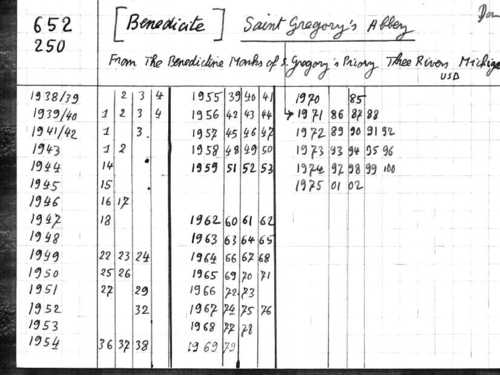 652
250
[Benedicite] Saint Gregory's Abbey
From The Benedictine Monks of S. Gregory's Priory Thee Rivers Michiga
USD
1938/39 2 3 4
1939/40 1 2 3 4
1941/42 1 3
1943 1 2
1944 14
1945 15
1946 16 17
1947 18
1948
1949 22 23 24
1950 25 26
1951 27 29
1952 32
1953
1954 36 37 38
1955 39 40 41
1956 42 43 44
1957 45 46 47
1958 48 49 50
1959 51 52 53
1962 60 61 62
1963 63 64 65
1964 66 67 68
1965 69 70 71
1966 72 73
1967 74 75 76
1968 77 78
1969 79
1970 85
1971 86 87 88
1972 89 90 91 92
1973 93 94 95 96
1974 97 98 99 100
1975 01 02